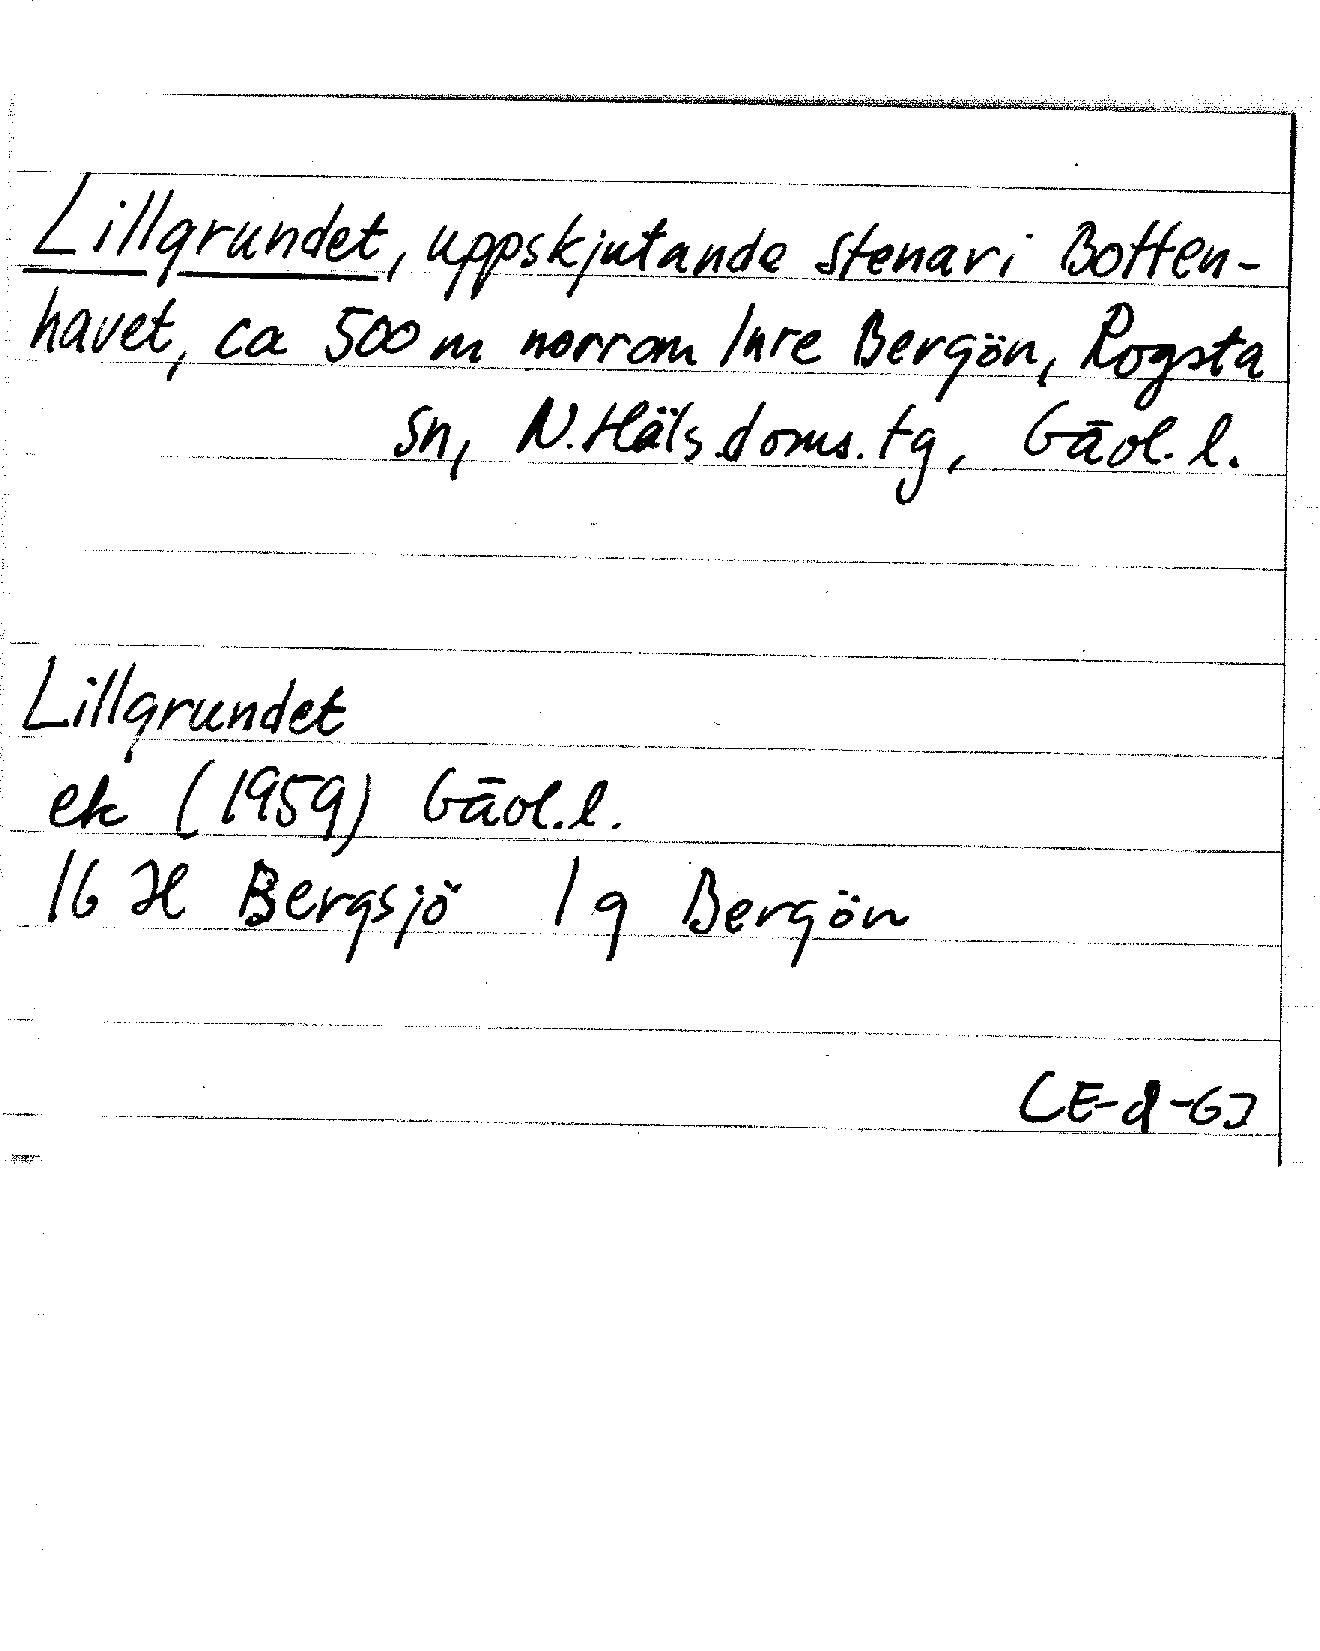 Lillgrundet, uppskjutande stenar i Botten-
havet, ca 500 m norrom Inre Bergön, Rogsta
sn, N. Häls. doms. tg, Gävl. l.
Lillgrundet
ek (1959) Gävl. l.
16 H Bergsjö 1 g Bergön